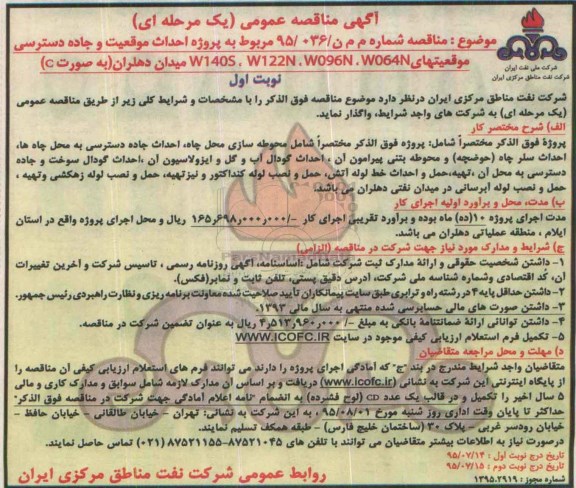 آگهی مناقصه عمومی (یک مرحله ای)
موضوع : مناقصه شماره م م ن/۰۳۶ /۹۵ مربوط به پروژه احداث موقعیت و جاده دسترسی
موقعیتهای W140S ، W122N ، W096N ، W064N میدان دهلران(به صورت C)
نوبت اول
شرکت ملی نفت ایران
شرکت نفت مناطق مرکزی ایران
شرکت نفت مناطق مرکزی ایران درنظر دارد موضوع مناقصه فوق الذکر را با مشخصات و شرایط کلی زیر از طریق مناقصه عمومی
(یک مرحله ای) به شرکت های واجد شرایط، واگذار نماید.
الف) شرح مختصر کار
پروژه فوق الذکر مختصراً شامل: پروژه فوق الذکر مختصراً شامل محوطه سازی محل چاه، احداث جاده دسترسی به محل چاه ها،
احداث سلر چاه (حوضچه) و محوطه بتنی پیرامون آن ، احداث گودال آب و گل و ایزولاسیون آن ،احداث گودال سوخت و جاده
دسترسی به محل آن ،تهیه،حمل و احداث خط لوله آتش، حمل و نصب لوله کنداکتور و نیزتهیه، حمل و نصب لوله زهکشی وتهیه ،
حمل و نصب لوله آبرسانی در میدان نفتی دهلران می باشد.
ب) مدت، محل و برآورد اولیه اجرای کار
مدت اجرای پروژه ۱۰(ده) ماه بوده و برآورد تقریبی اجرای کار -/۱۶۵٫۶۹۸٫۰۰۰٫۰۰۰ ریال و محل اجرای پروژه واقع در استان
ایلام ، منطقه عملیاتی دهلران می باشد.
ج) شرایط و مدارک مورد نیاز جهت شرکت در مناقصه (الزامی)
۱- داشتن شخصیت حقوقی و ارائه مدارک ثبت شرکت شامل :اساسنامه آگهی روزنامه رسمی ، تاسیس شرکت و آخرین تغییرات
آن، کد اقتصادی وشماره شناسه ملی شرکت، آدرس دقیق پستی، تلفن ثابت و نمابر(فکس).
۲- داشتن حداقل پایه ۴ در رشته راه و ترابری طبق سایت پیمانکاران تأیید صلاحیت شده معاونت برنامه ریزی و نظارت راهبردی رئیس جمهور.
۳- داشتن صورت های مالی حسابرسی شده منتهی به سال مالی ۱۳۹۳.
۴- داشتن توانائی ارائه ضمانتنامه بانکی به مبلغ -/۴٫۵۱۳٫۹۶۰٫۰۰۰ ریال به عنوان تضمین شرکت در مناقصه.
۵- تکمیل فرم استعلام ارزیابی کیفی موجود در سایت WWW.ICOFC.IR
د) مهلت و محل مراجعه متقاضیان
متقاضیان واجد شرایط مندرج در بند "ج" که آمادگی اجرای پروژه را دارند می توانند فرم های استعلام ارزیابی کیفی آن مناقصه را
از پایگاه اینترنتی این شرکت به نشانی (www.icofc.ir) دریافت و بر اساس آن مدارک لازمه شامل سوابق و مدارک کاری و مالی
۵ سال اخیر را تکمیل و در قالب یک عدد CD (لوح فشرده) به انضمام "نامه اعلام آمادگی جهت شرکت در مناقصه فوق الذکر"
حداکثر تا پایان وقت اداری روز شنبه مورخ ۹۵/۰۸/۰۱ ، به این شرکت به نشانی: تهران - خیابان طالقانی - خیابان حافظ -
خیابان رودسر غربی - پلاک ۳۰ (ساختمان خلیج فارس) - طبقه همکف تسلیم نمایند.
درصورت نیاز به اطلاعات بیشتر متقاضیان می توانند با تلفن های ۸۷۵۲۱۰۴۵-۸۷۵۲۱۱۵۵ (۰۲۱) تماس حاصل نمایند.
تاریخ درج نوبت اول : ۹۵/۰۷/۱۴
تاریخ درج نوبت دوم : ۹۵/۰۷/۱۵
شماره مجوز : ۱۳۹۵.۲۹۱۹
روابط عمومی شرکت نفت مناطق مرکزی ایران